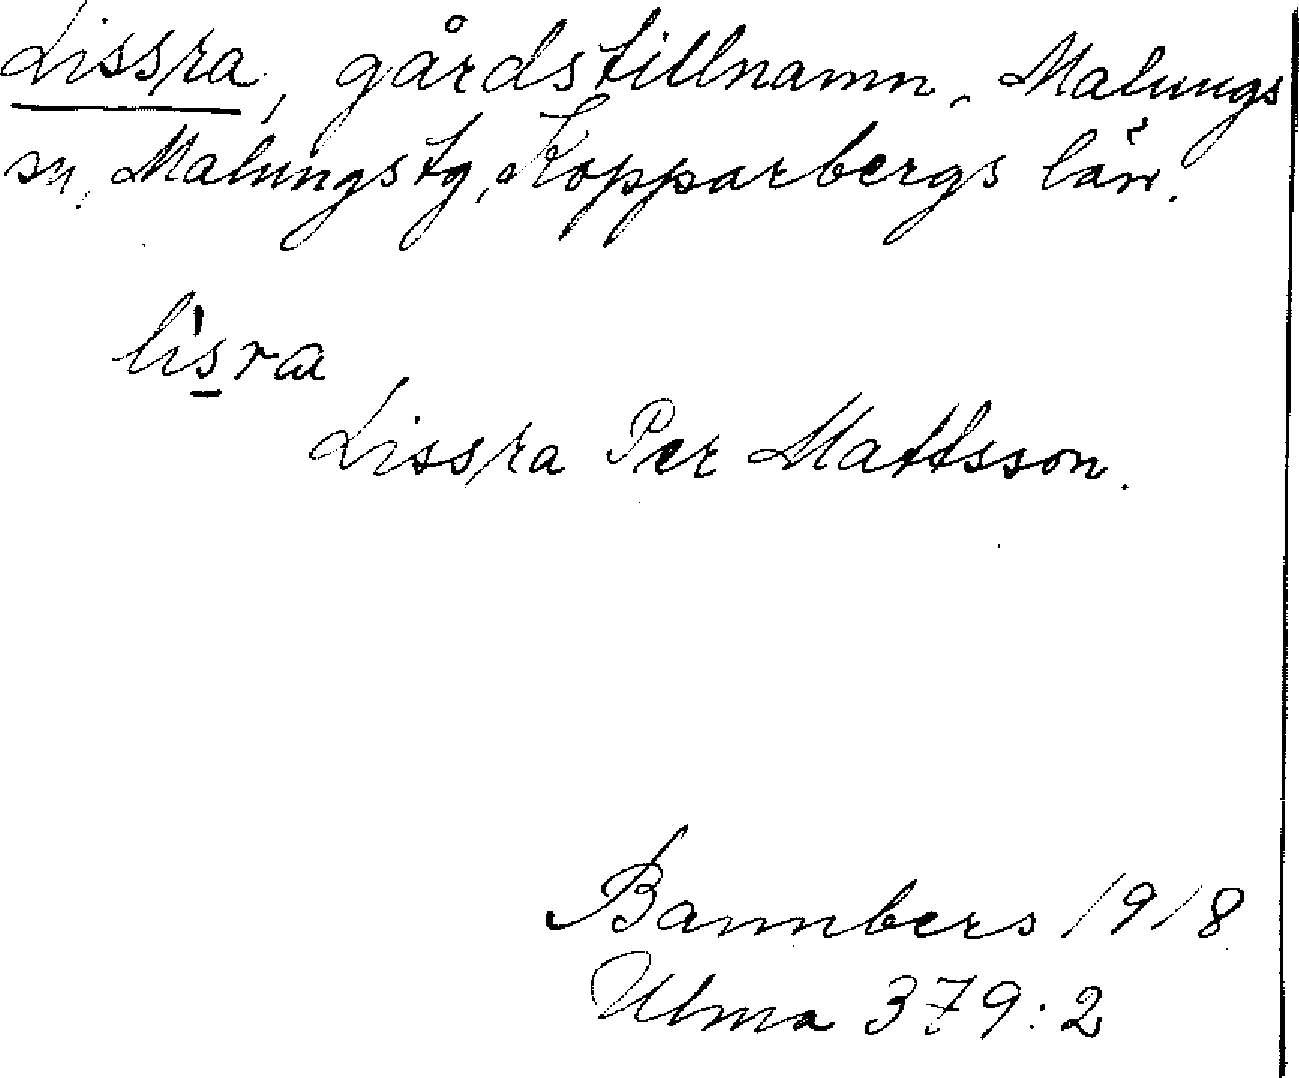 Lissra, gårdstillnamn, Malungs
sn, Malungs tg, Kopparbergs län.
lisra
Lissra Per Mattsson.
Bannbers 1918
Ulma 379:2